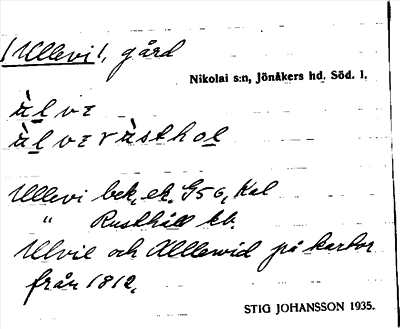 /Ullevi/, gård
Nikolai s:n, Jönåkers hd. Söd. l.
ùlvɛ
ùlvɛrùsthol
Ullevi bek. ek. G56, Kal
" Rusthåll kb.
Ulvie och Ullewid på kartor
från 1812.
STIG JOHANSSON 1935.